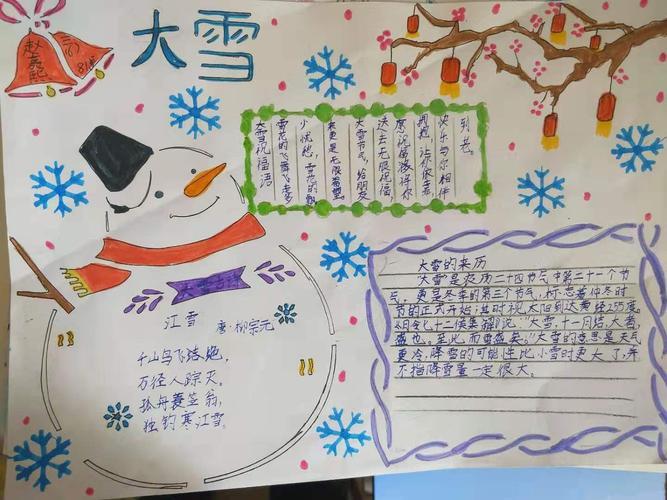 大雪
大雪祝福语
雪花的飞舞
小忧愁，雪花的飘
来更是无限希望。
大雪节气，给朋友
送去无限祝福，
到老。
大雪的来历
大雪是农历二十四节气中第二十一个节
气，更是冬季的第三个节气，标志着仲冬时
节的正式开始；其时视太阳到达黄经255度。
《月令七十二候集解》说："大雪，十一月节，大者，
盛也。至此而雪盛矣。"大雪的意思是天气
更冷，降雪的可能性比小雪时更大了，并
不指降雪量一定很大。
江雪
唐·柳宗元
千山鸟飞绝，
万径人踪灭。
孤舟蓑笠翁，
独钓寒江雪。